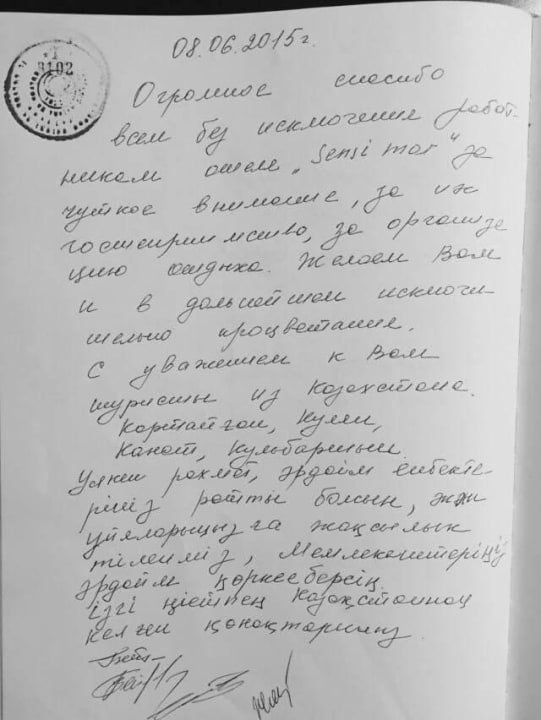 08.06.2015г.
8102
Огромное спасибо
всем без исключения работ-
никам отеля „Sensimar" за
чуткое внимание, за их
гостеприимство, за организа
цию отдыха. Желаем Вам
и в дальнейшем исключи
тельно процветания.
С уважением к Вам
туристы из Казахстана.
Кортайган, Куляш,
Канат, Кульбаршын.
Үлкен рахмет, әрдайім еңбекте
ріңіз рәтті болсын,
ұяларыңызға жақсылық
тілейміз, Мемлекеттеріңіз
әрдайім көркее берсің.
ізгі ниетпен Казақстаннан
келген қонақтарыңыз